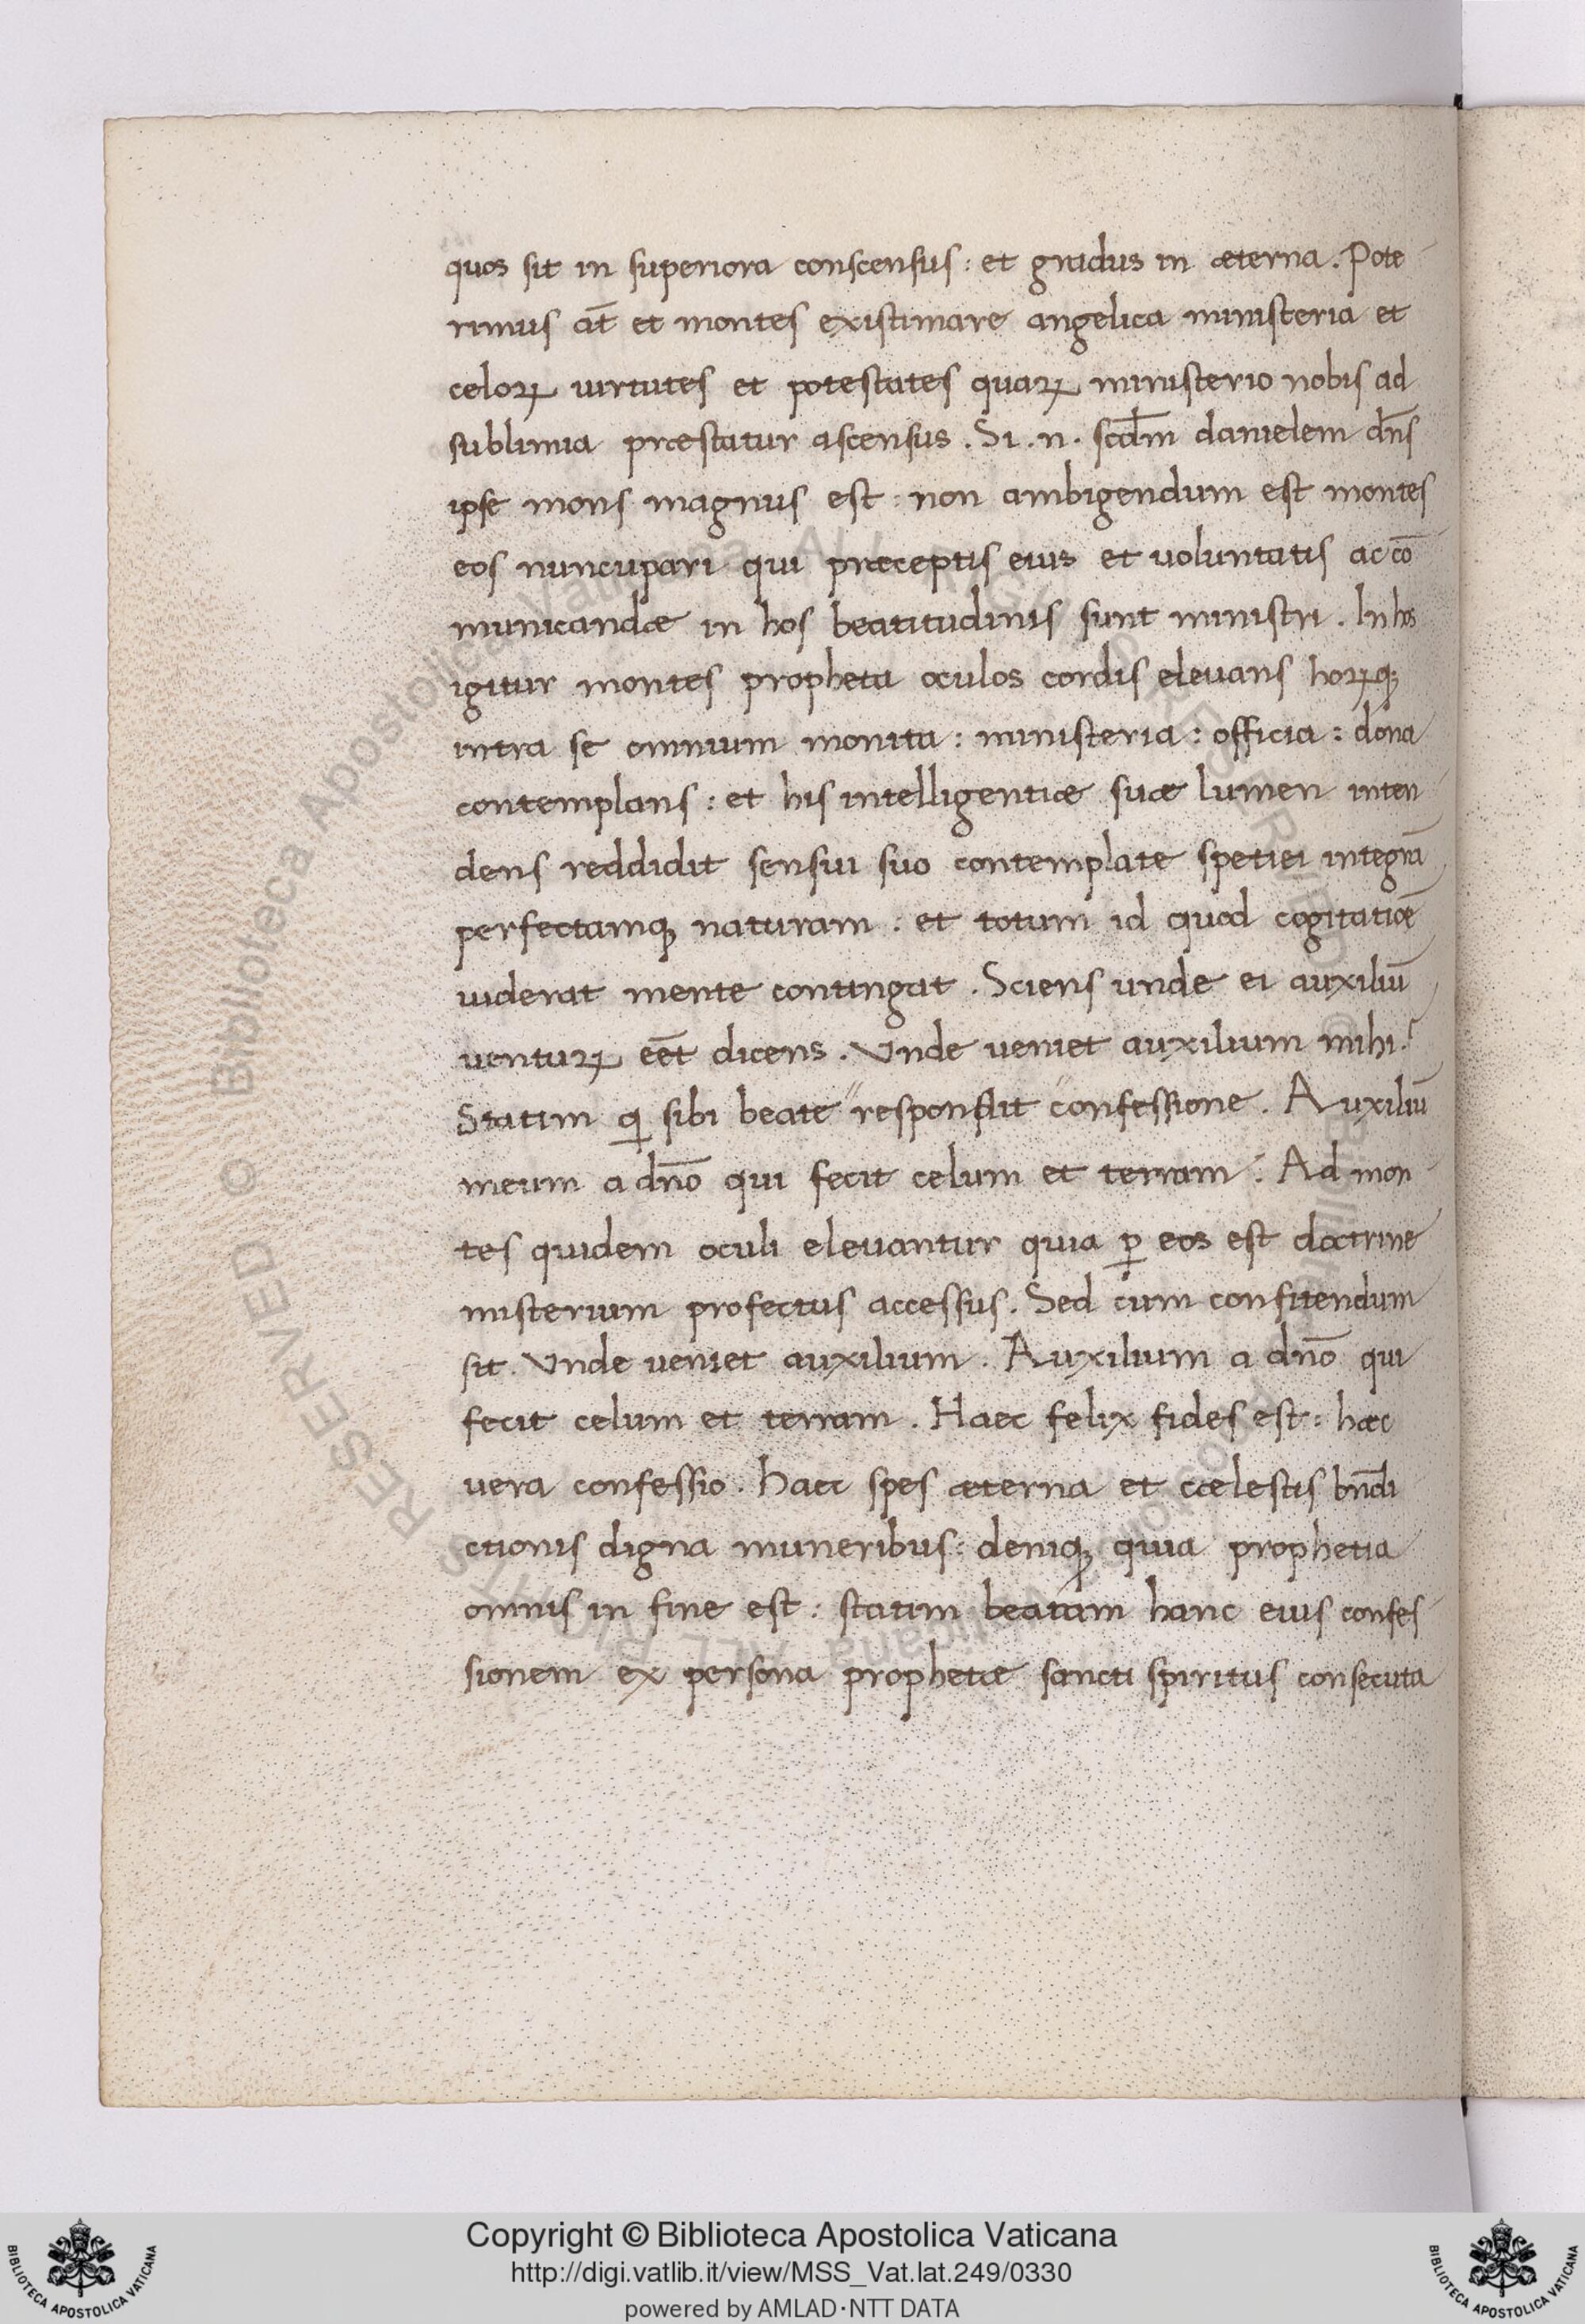 quos sit in superiora conscensus : et gradus in æterna . Pote
rimus at̄ et montes existimare angelica ministeria et
celoꝝ uirtutes et potestates quaꝝ ministerio nobis ad
sublimia præstatur ascensus . Si . n . scd̄m danielem dn̄s
ipse mons magnus est : non ambigendum est montes
eos nuncupari qui præceptis eius et uoluntatis ac cō
municandæ in hos beatitudinis sunt ministri . In hos
igitur montes propheta oculos cordis eleuans hoꝝqꝫ
intra se omnium monita : ministeria : officia : dona
contemplans : et his intelligentiæ suæ lumen inten
dens reddidit sensui suo contemplate spetiei integrā
perfectamqꝫ naturam : et totum id quod cogitatiōe
uiderat mente contingat . Sciens unde ei auxiliū
uenturꝝ eēt dicens . Vnde ueniet auxilium mihi ?
Statim ꝗ sibi beate "respondit "confessione . Auxiliū
meum a dn̄o qui fecit celum et terram : Ad mon
tes quidem oculi eleuantur quia ꝑ eos est doctrine
misterium profectus accessus . Sed cum confitendum
sit . Vnde ueniet auxilium . Auxilium a dn̄o qui
fecit celum et terram . Haec felix fides est : hæc
uera confessio . Haec spes æterna et cœlestis bn̄di
ctionis digna muneribus : deniqꝫ quia prophetia
omnis in fine est : statim beatam hanc eius confes
sionem ex persona prophetiæ sancti spiritus consecuta
Copyright © Biblioteca Apostolica Vaticana
http://digi.vatlib.it/view/MSS_Vat.lat.249/0330
powered by AMLAD·NTT DATA